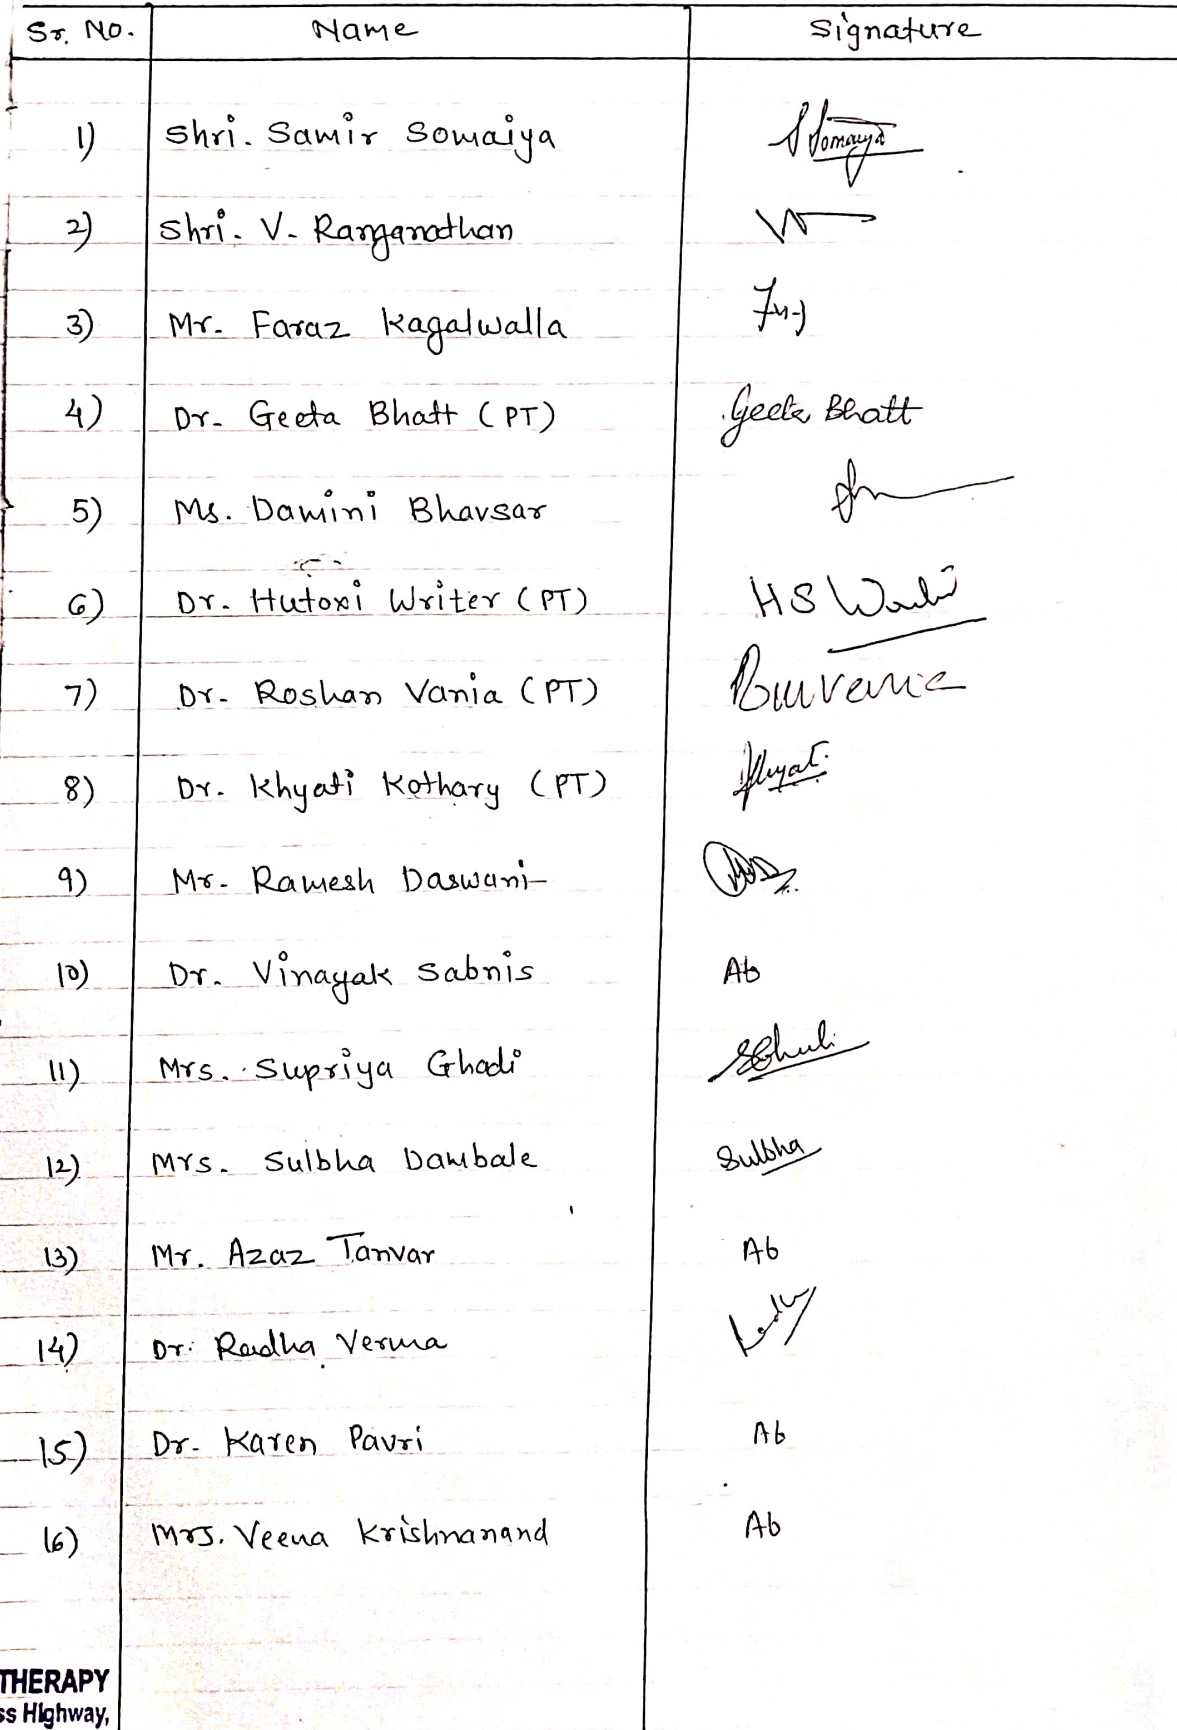 Sr. No. Name Signature
1) Shri. Samir Somaiya SSomaiya
2) Shri. V. Ranganathan
3) Mr. Faraz Kagalwalla
4) Dr. Geeta Bhatt (PT) Geeta Bhatt
5) Ms. Damini Bhavsar
6) Dr. Hutoxi Writer (PT) HS
7) Dr. Roshan Vania (PT)
8) Dr. Khyati Kothary (PT)
9) Mr. Ramesh Daswani
10) Dr. Vinayak Sabnis Ab
11) Mrs. Supriya Ghadi
12) Mrs. Sulbha Dambale Sulbha
13) Mr. Azaz Tanvar Ab
14) Dr. Radha Verma
15) Dr. Karen Pavri Ab
16) Mrs. Veena Krishnanand Ab
THERAPY
ss Highway,